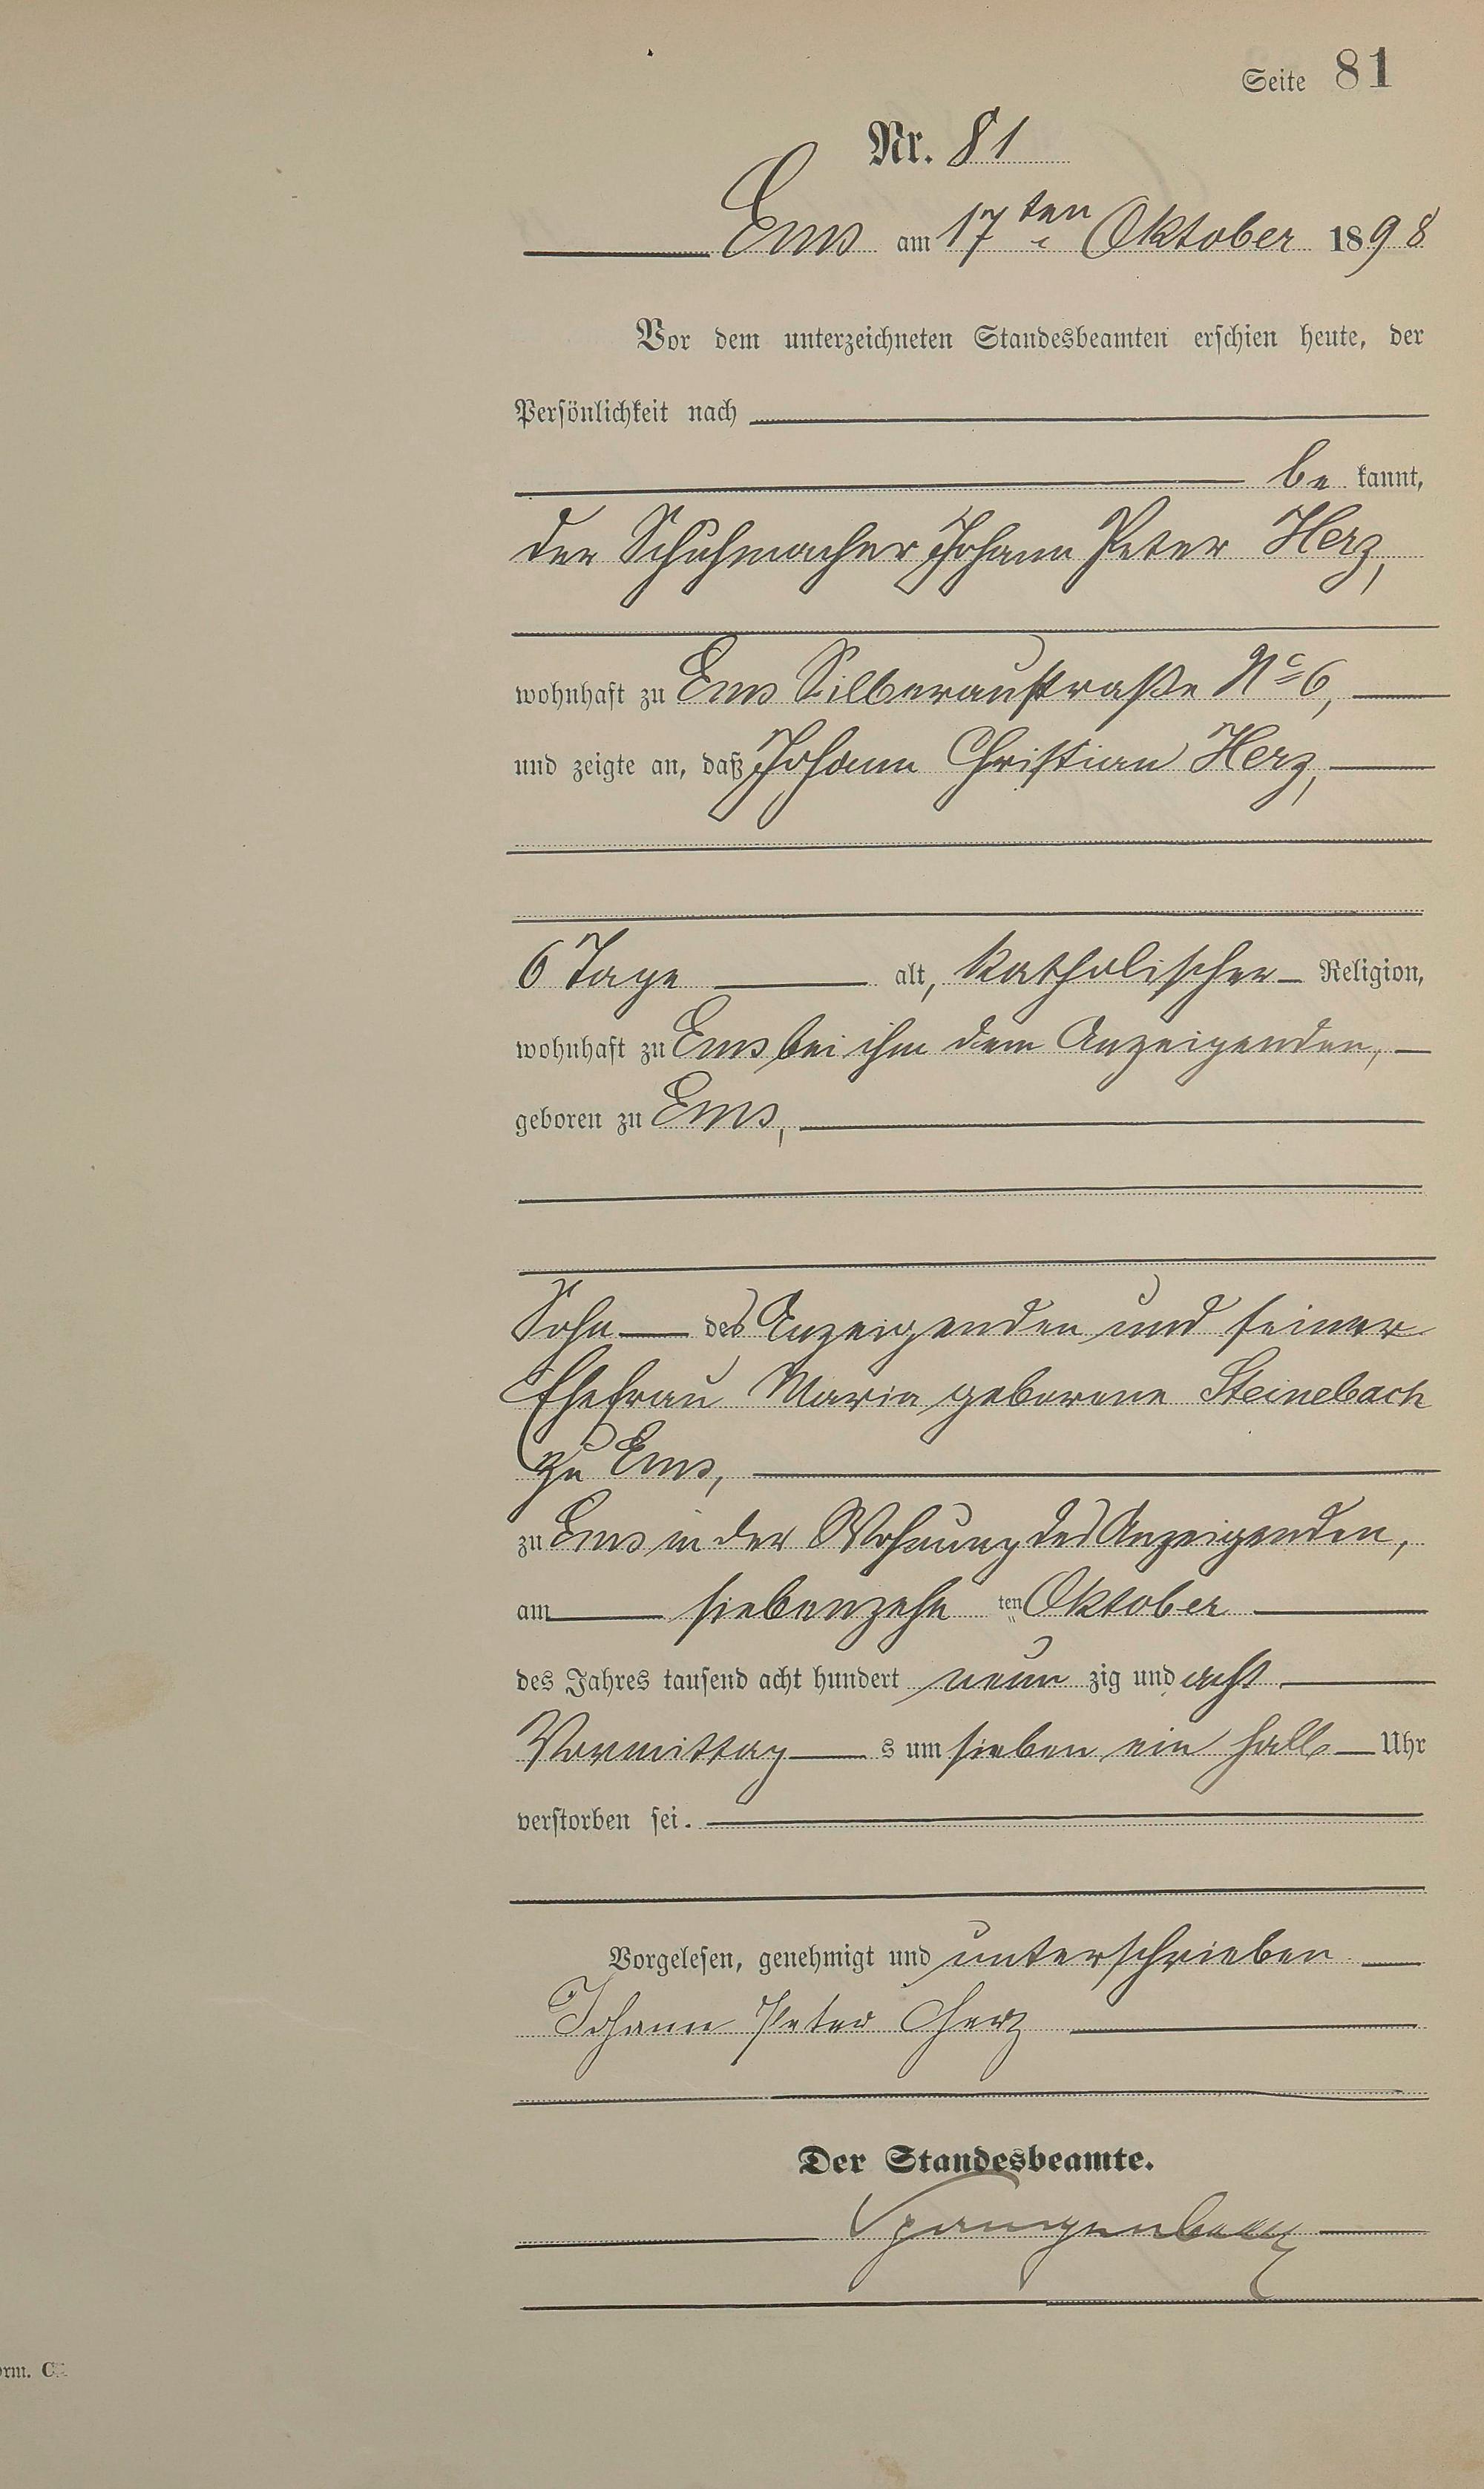 Seite 81
Nr. 81
Ems am 17ten Oktober 1898
Vor dem unterzeichneten Standesbeamten erschien heute, der
Persönlichkeit nach
be kannt,
der Schuhmacher Johann Peter Herz,
wohnhaft zu Ems Silberaustraße No 6,
und zeigte an, daß Johann Christian Herz,
6 Tage alt, katholischer Religion,
wohnhaft zu Ems bei ihm dem Anzeigenden,
geboren zu Ems,
Sohn des Anzeigenden und seiner
Ehefrau Maria geborene Steinebach
zu Ems,
zu Ems in der Wohnung des Anzeigenden,
am siebenzehn ten Oktober
des Jahres tausend acht hundert neun zig und acht
Vormittag s um sieben ein halb Uhr
verstorben sei.
Vorgelesen, genehmigt und unterschrieben
Johann Peter Herz
Der Standesbeamte.
orm. C.